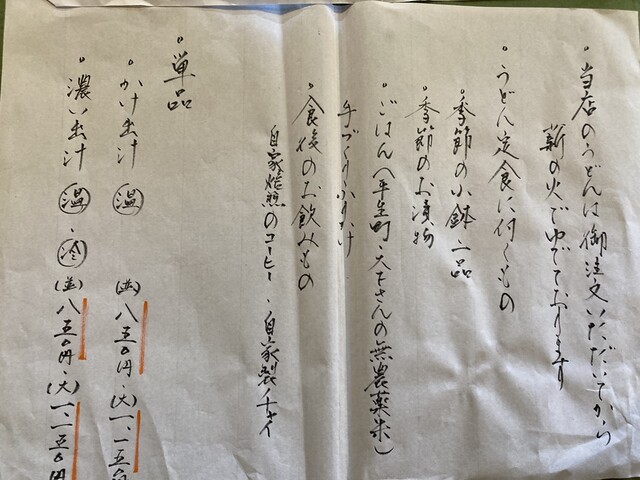 。当店のうどんは御注文いただいてから
薪の火でゆでております
。うどん定食に付くもの
。季節の小鉢二品
。季節のお漬物
。ごはん(平生町・大下さんの無農薬米)
手づくりふりかけ
。食後のお飲みもの
自家焙煎のコーヒー・自家製チャイ
。単品
。かけ出汁 温 (並)八五〇円・(大)一、一五〇
。濃い出汁 温・冷 (並)八五〇円・(大)一、一五〇円